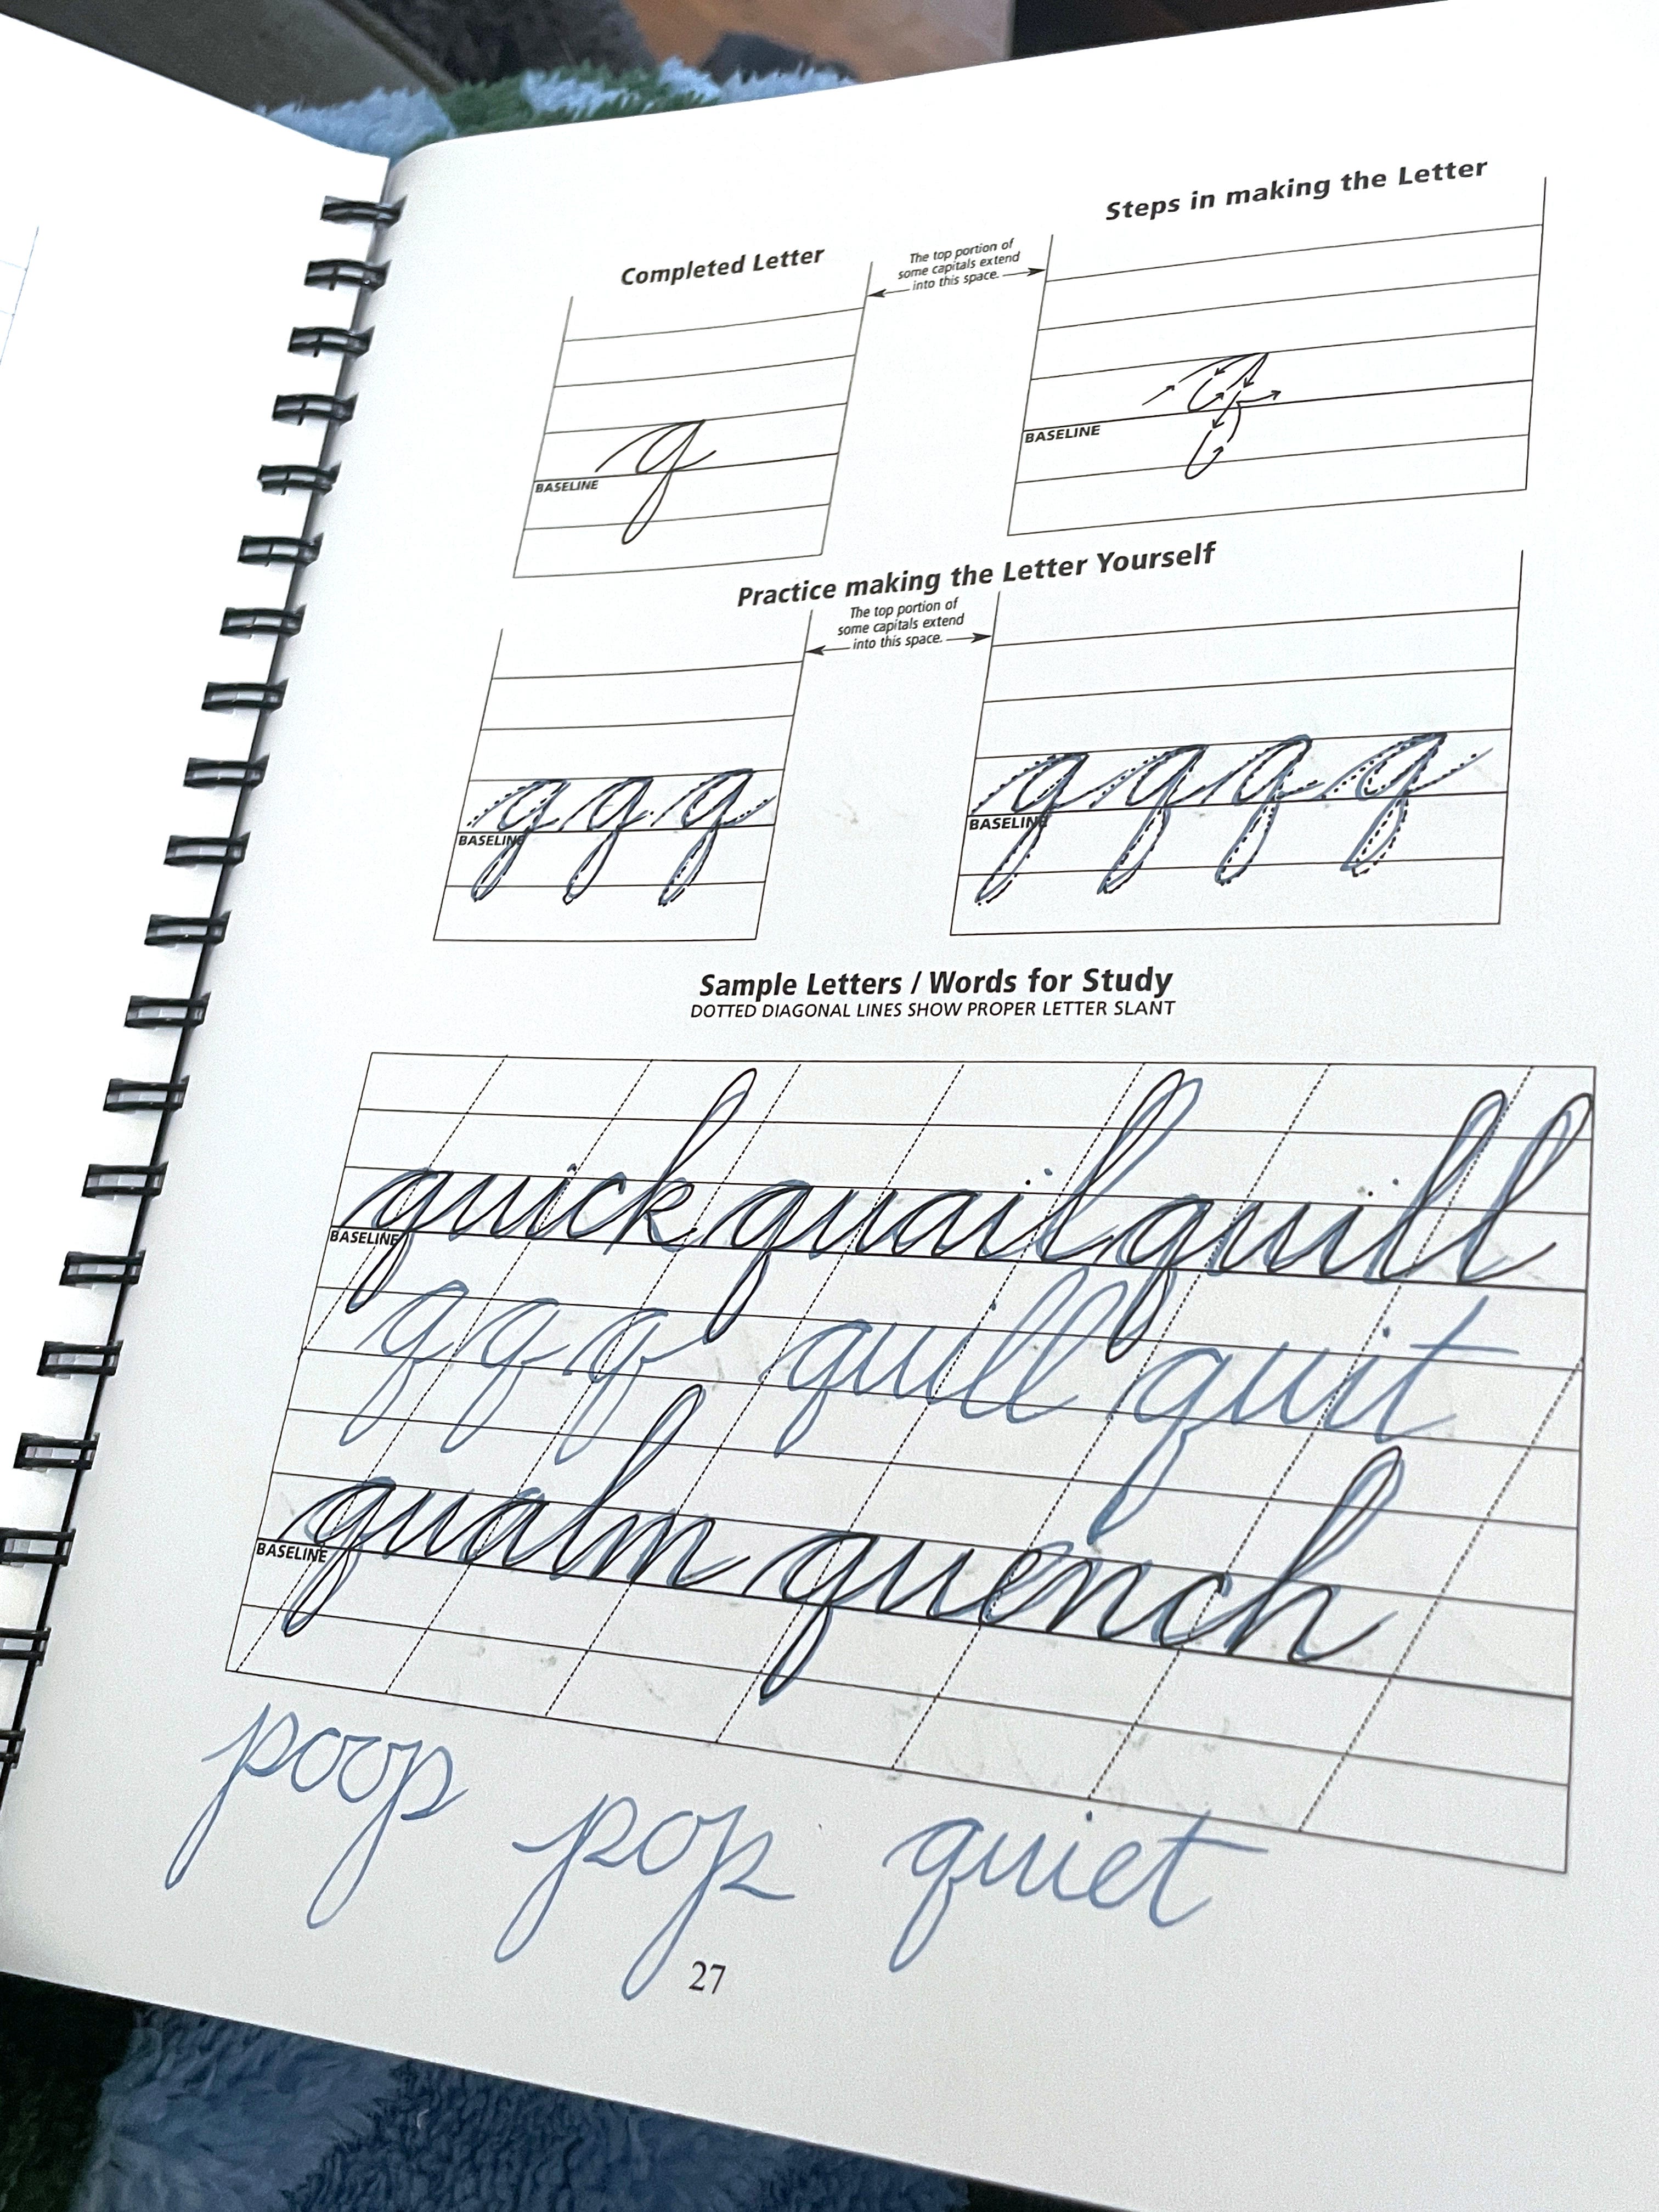 Completed Letter
The top portion of
some capitals extend
into this space.
Steps in making the Letter
q
BASELINE
BASELINE
Practice making the Letter Yourself
The top portion of
some capitals extend
into this space.
q q q
BASELINE
q q q q
BASELINE
Sample Letters / Words for Study
DOTTED DIAGONAL LINES SHOW PROPER LETTER SLANT
quick quail quill
BASELINE
q q q quill quit
qualm quench
BASELINE
poop pop quiet
27